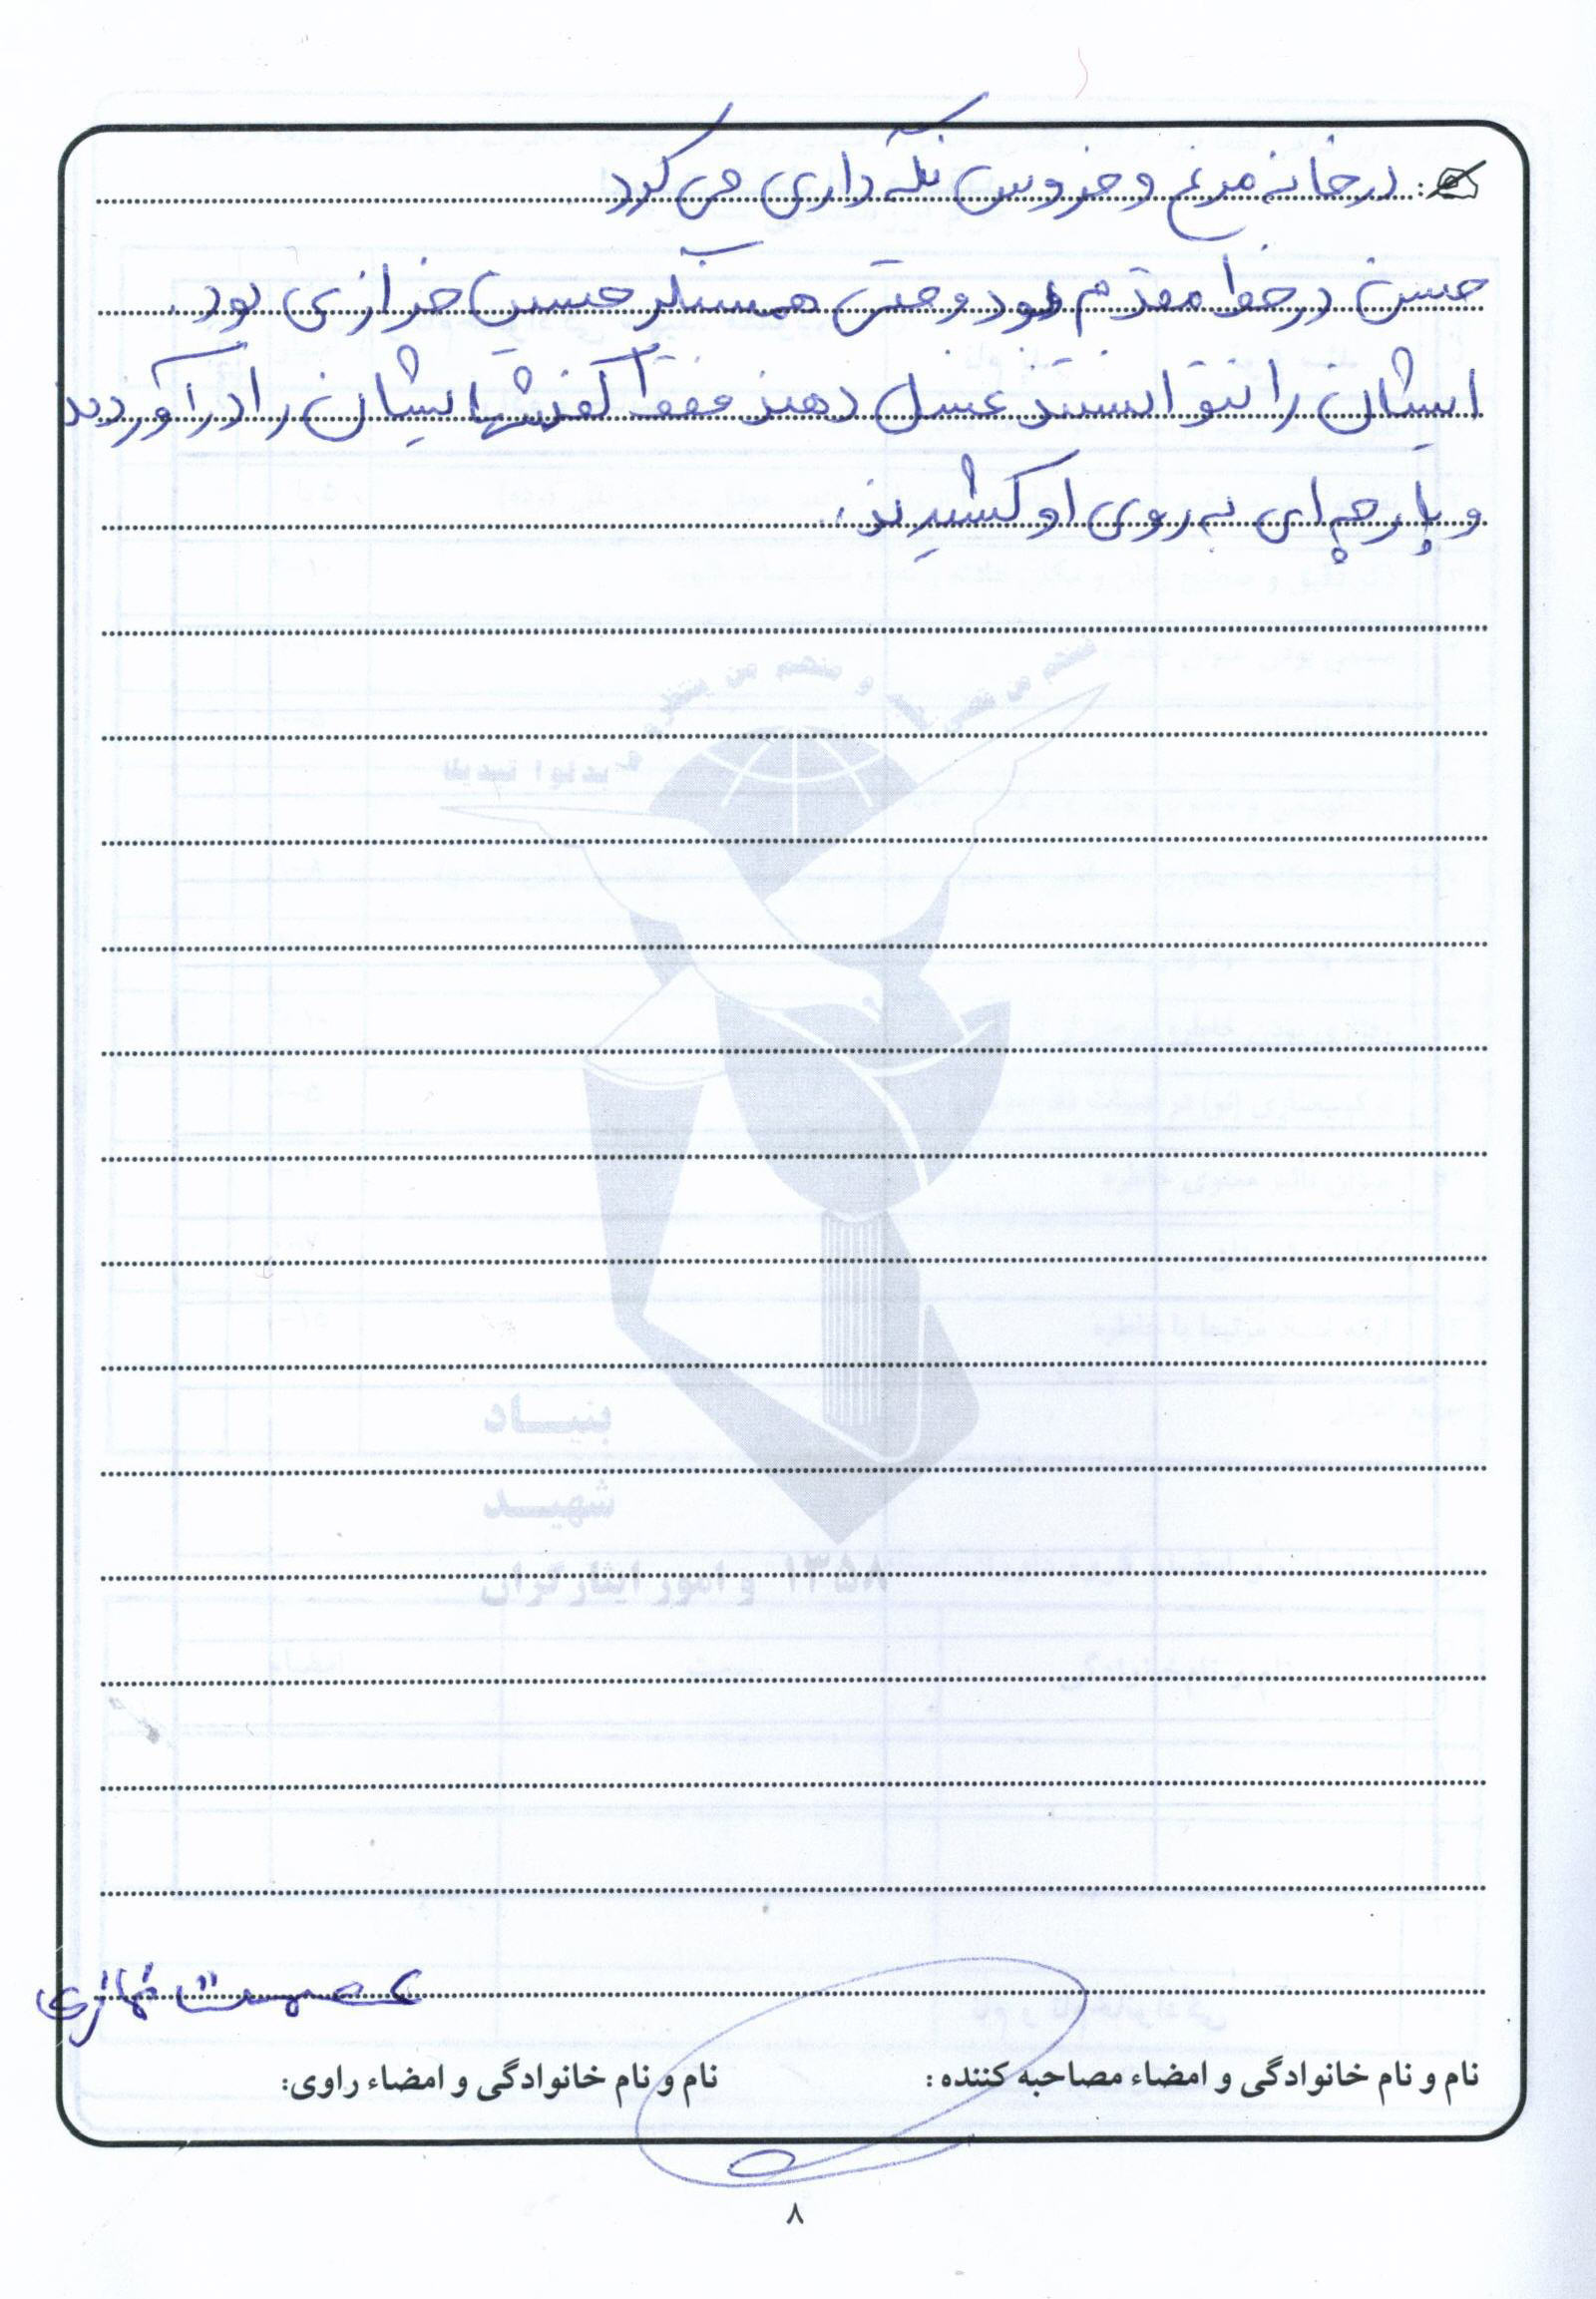 در خانه مرغ و خروس نگه داری می کرد
حسن در خط مقدم بود و حتی همسنگر حسین خرازی بود.
ایشان را نتوانستند غسل دهند فقط کفشهایشان را درآوردند
و پارچه ای به روی او کشیدند.
بنیاد
شهید
و امور ایثارگران ۱۳۵۸
عصمت نمازی
نام و نام خانوادگی و امضاء مصاحبه کننده: نام و نام خانوادگی و امضاء راوی:
۸